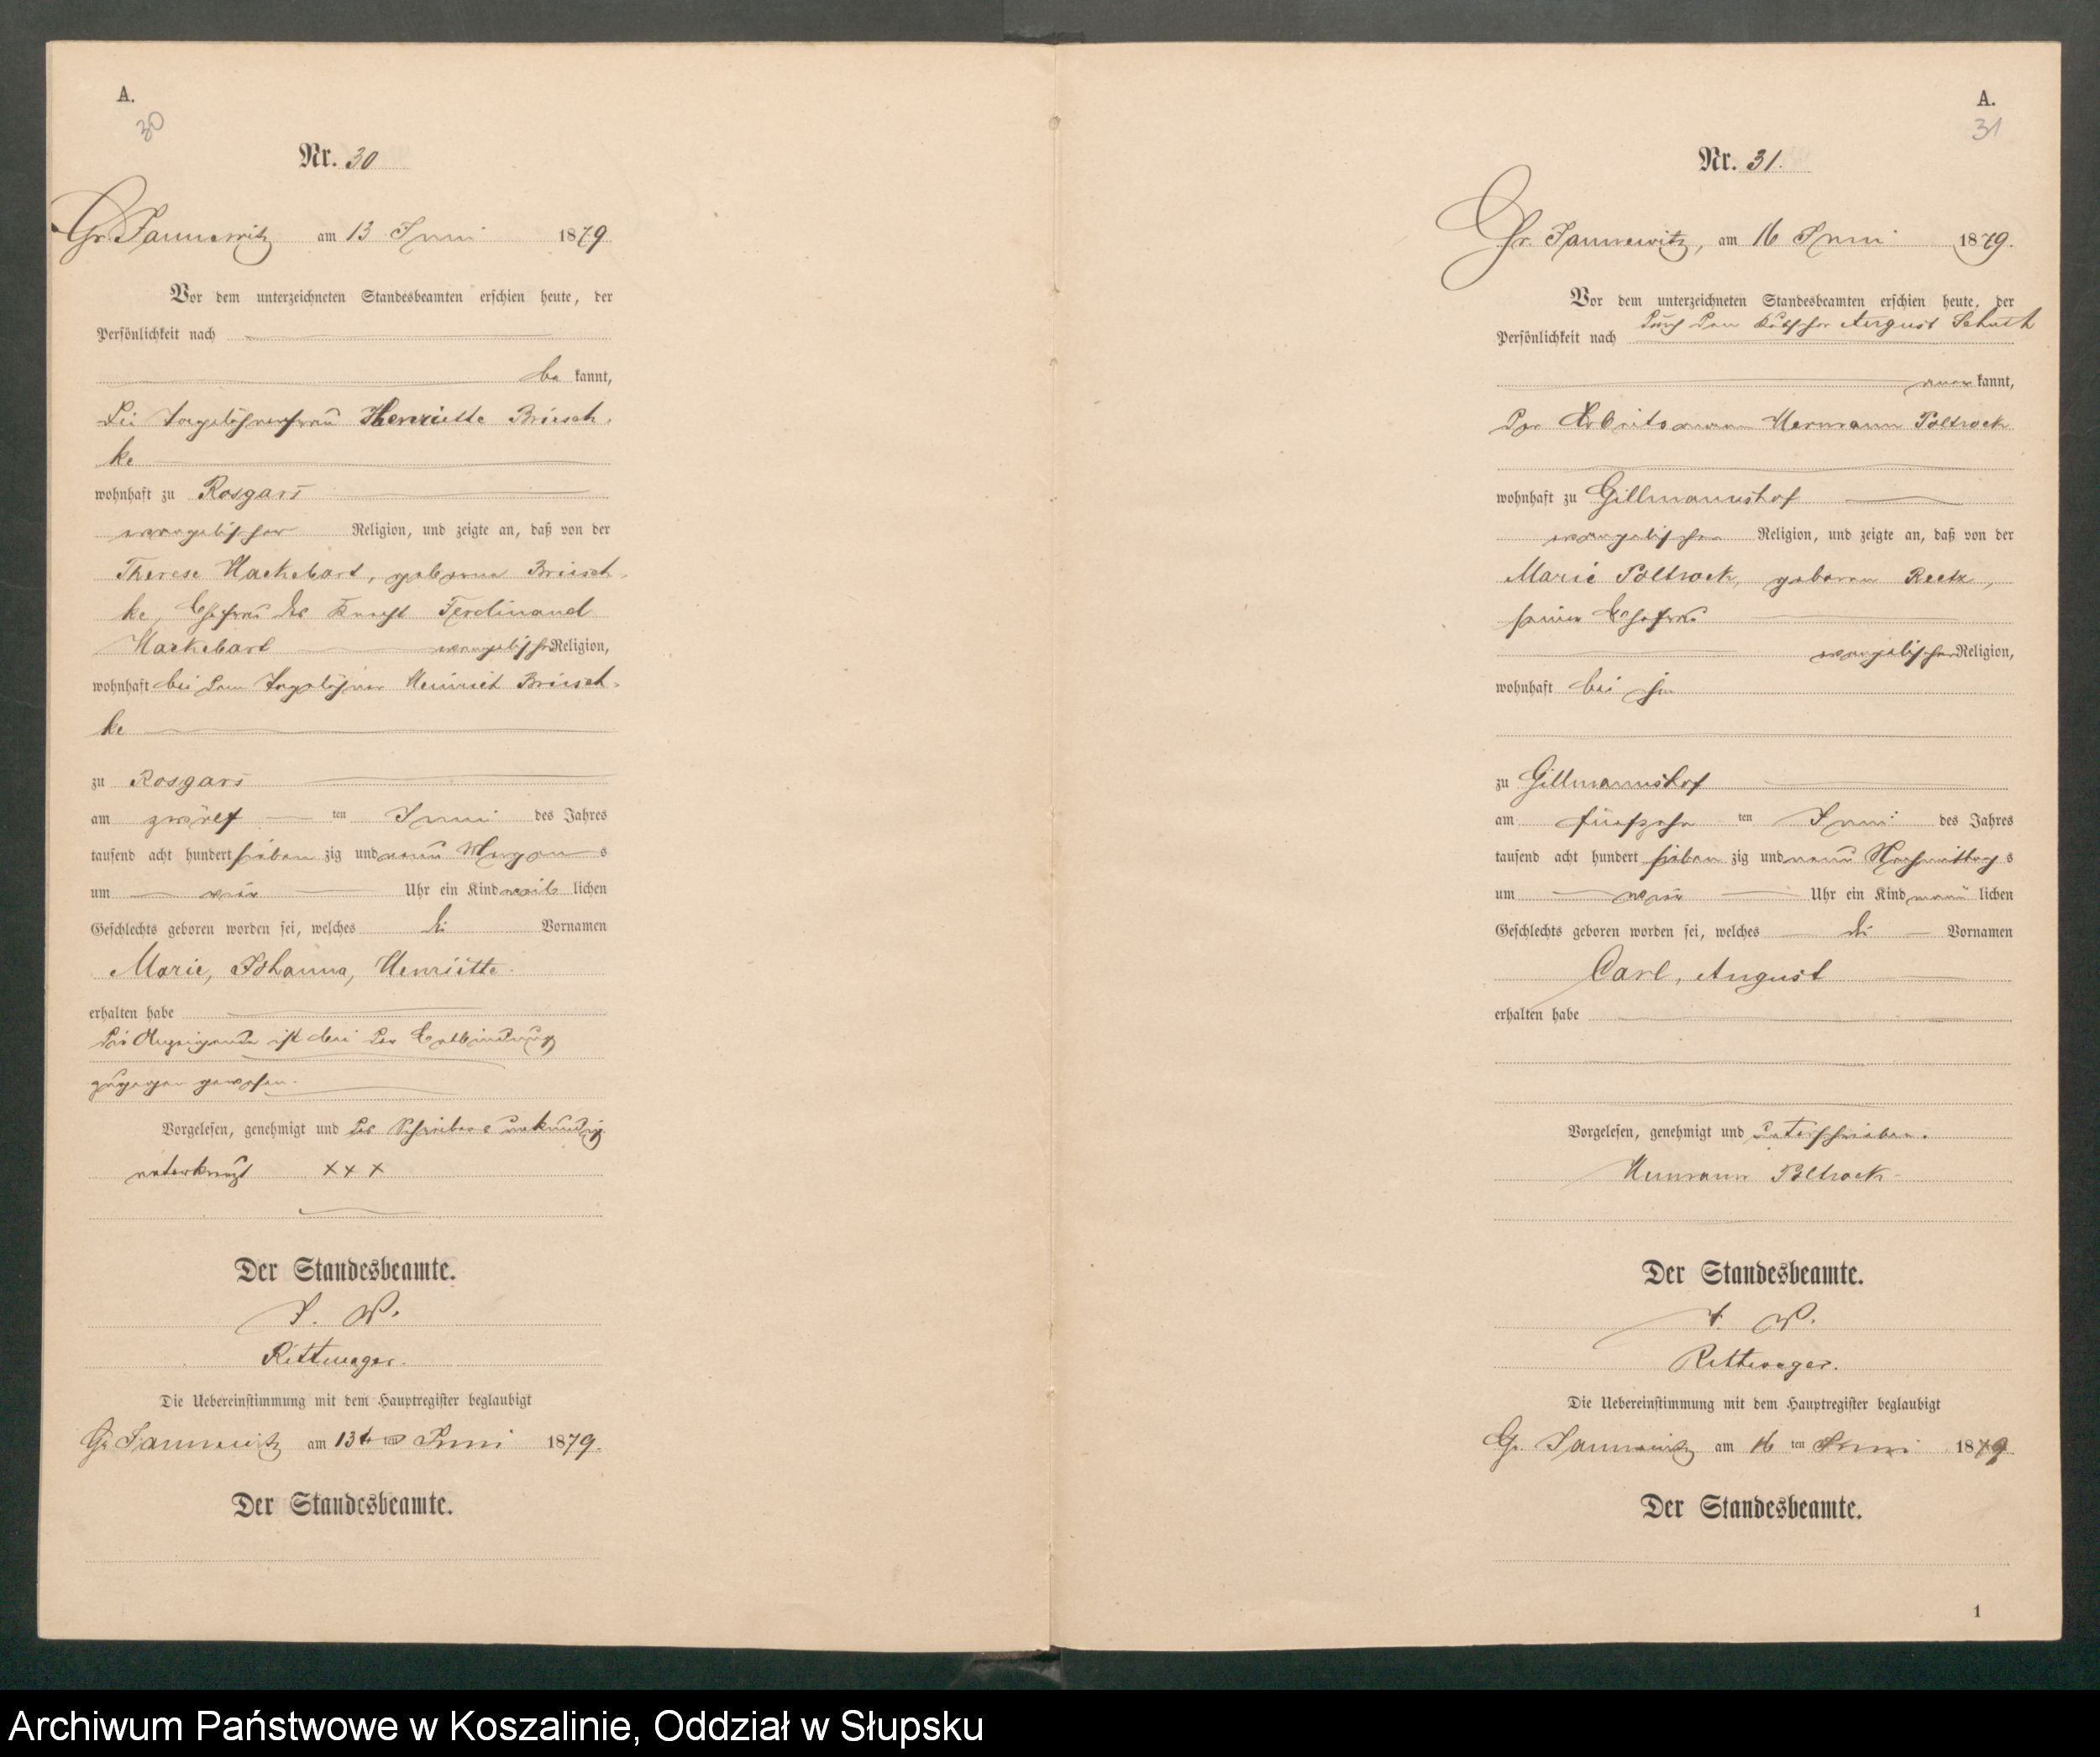 A.
30
Nr. 30
Gr. Jannewitz am 13 Juni 1879
Vor dem unterzeichneten Standesbeamten erschien heute, der
Persönlichkeit nach
be kannt,
die Tagelöhnerfrau Henriette Briesch-
ke
wohnhaft zu Rosgars
evangelischer Religion, und zeigte an, daß von der
Therese Hackebart, geborene Briesch-
ke, Ehefrau des Knecht Ferdinand
Hackebart evangelischer Religion,
wohnhaft bei dem Tagelöhner Heinrich Briesch-
ke
zu Rosgars
am zwölf ten Juni des Jahres
tausend acht hundert sieben zig und neun Morgen s
um vier Uhr ein Kind weib lichen
Geschlechts geboren worden sei, welches die Vornamen
Marie, Johanna, Henriette.
erhalten habe
Die Anzeigende ist bei der Entbindung
zugegen gewesen.
Vorgelesen, genehmigt und des Schreibens unkundig
unterkreuzt xxx
Der Standesbeamte.
J. V.
Rittwager.
Die Uebereinstimmung mit dem Hauptregister beglaubigt
Gr. Jannewitz am 13t ten Juni 1879.
Der Standesbeamte.
A.
31
Nr. 31.
Gr. Jannewitz, am 16 Juni 1879.
Vor dem unterzeichneten Standesbeamten erschien heute, der
Persönlichkeit nach durch den Kutscher August Schuth
aner kannt,
Der Arbeitsmann Hermann Poltrock
wohnhaft zu Gillmannshof
evangelischer Religion, und zeigte an, daß von der
Marie Poltrock, geboren Reetz,
seiner Ehefrau
evangelischer Religion,
wohnhaft bei ihm
zu Gillmannshof
am fünfzehn ten Juni des Jahres
tausend acht hundert sieben zig und neun Nachmittag s
um vier Uhr ein Kind männ lichen
Geschlechts geboren worden sei, welches die Vornamen
Carl, August
erhalten habe
Vorgelesen, genehmigt und unterschrieben.
Hermann Poltrock
Der Standesbeamte.
J. V.
Rittwager.
Die Uebereinstimmung mit dem Hauptregister beglaubigt
Gr. Jannewitz am 16 ten Juni 1879
Der Standesbeamte.
1
Archiwum Państwowe w Koszalinie, Oddział w Słupsku